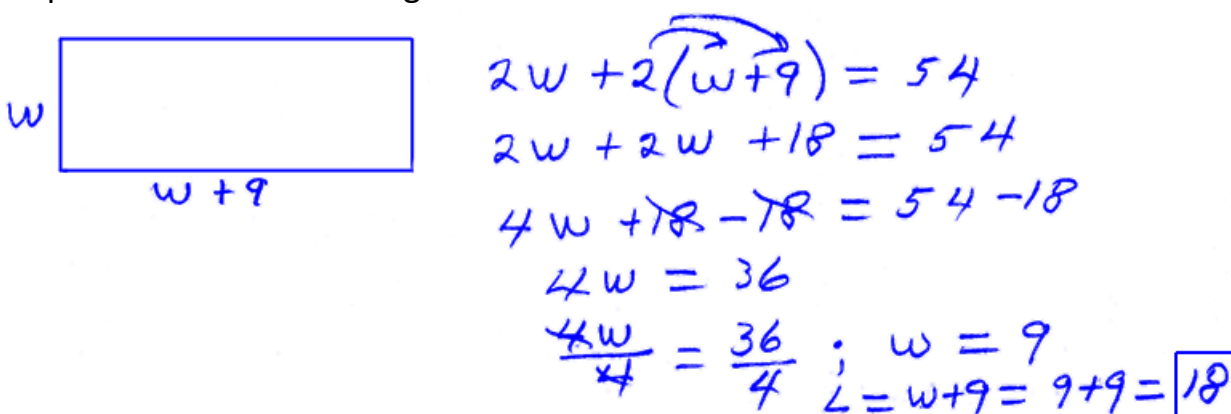 w
w + 9
2w + 2(w+9) = 54
2w + 2w + 18 = 54
4w + 18 - 18 = 54 - 18
4w = 36
4w/4 = 36/4 ; w = 9
L = w+9 = 9+9 = 18